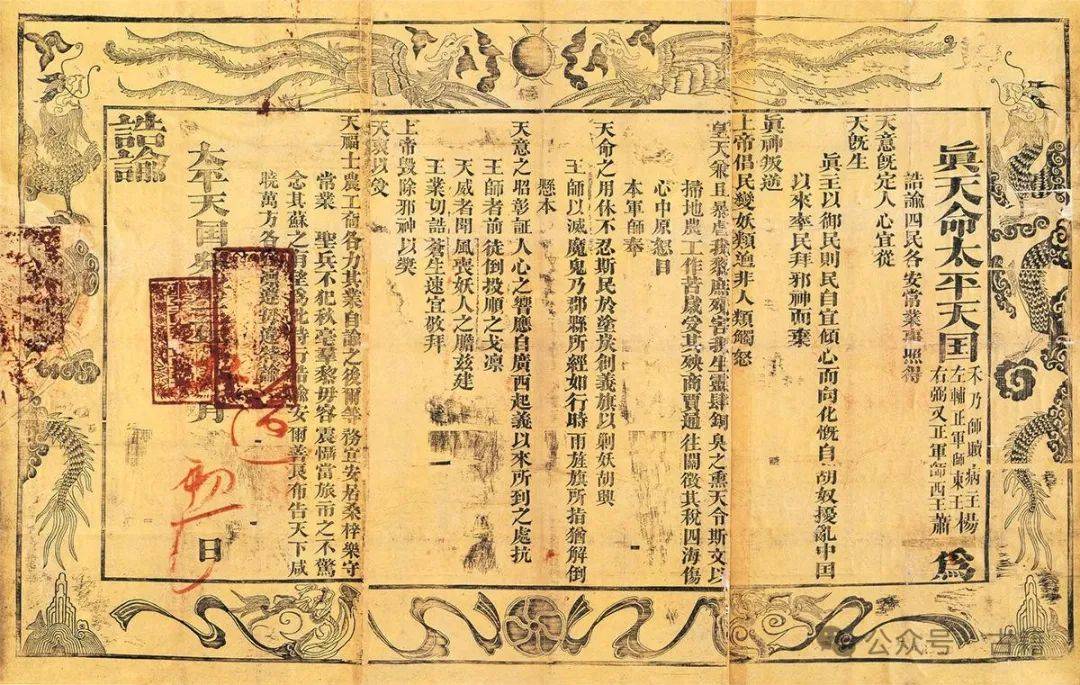 眞天命太平天国
禾乃師贖病主
左輔正軍師東王楊
右弼又正軍師西王蕭
爲
誥諭四民各安常業事照得
天意旣定人心宜從
天旣生
眞主以御民則民自宜傾心而向化慨自胡奴擾亂中国
以來率民拜邪神而棄
眞神叛逆
上帝倡民變妖類迨非人類觸怒
皇天兼且暴虐我黎庶殘害我生靈肆銅臭之熏天令斯文以
掃地農工作苦歲受其殃商賈通往關徵其稅四海傷
心中原怒目
本軍師奉
天命之用休不忍斯民於塗炭創義旗以剿妖胡興
王師以滅魔鬼乃郡縣所經如行時雨旌旗所指猶解倒
懸本
天意之昭彰証人心之響應自廣西起義以來所到之處抗
王師者前徒倒投順之戈凛
天威者聞風喪妖人之膽茲建
王業切誥蒼生速宜敬拜
上帝毀除邪神以獎
天衷以受
天福士農工商各力其業自諭之後爾等務宜安居桑梓樂守
常業 聖兵不犯秋毫羣黎毋容震懾當旅市之不驚
念其蘇之有望爲此特行誥諭安爾善良布告天下咸
曉萬方各 遵毋違誥諭
太平天国 月初 日
誥諭
公众号 古籍